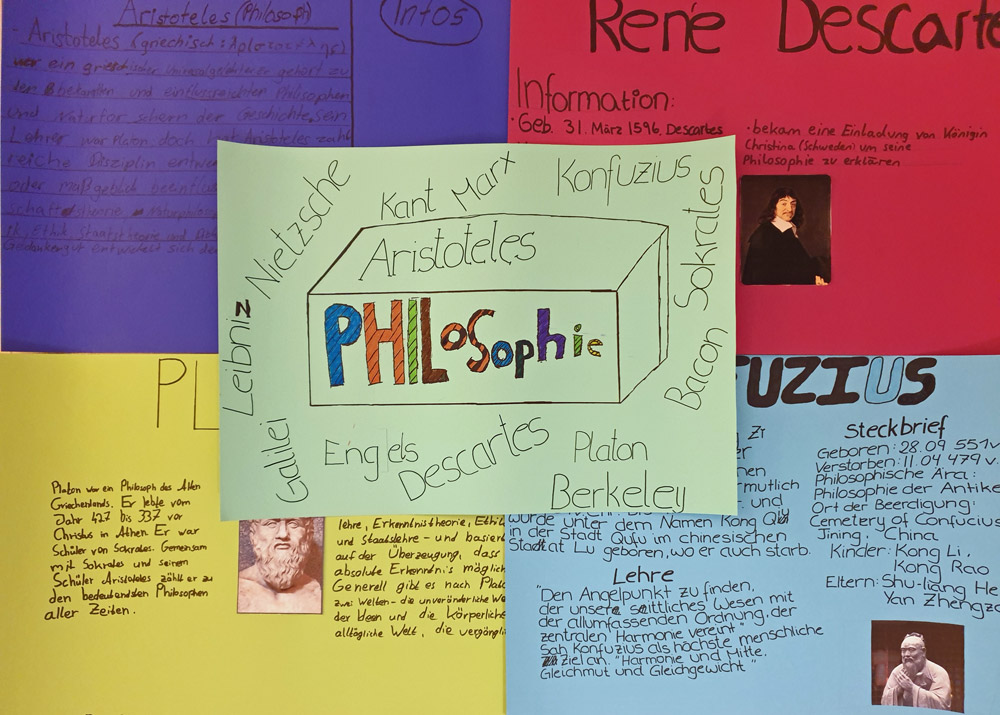 Aristoteles (Philosoph)
- Aristoteles (griechisch:
war ein griechischer Universalgelehrter gehört zu
den bekannten und einflussreichsten Philosophen
und Naturforschern der Geschichte. sein
Lehrer war Platon, doch hat Aristoteles zahl
reiche Disziplin
oder maßgeblich beeinflus
Naturphiloso
Ethik, Staatstheorie und
Gedankengut entwickelt sich der
Infos
René Descarte
Information:
· Geb. 31. März 1596, Descartes
· bekam eine Einladung von Königin
Christina (Schweden) um seine
Philosophie zu erklären
Nietzsche
Kant
Marx
Konfuzius
Sokrates
Aristoteles
PHILosophie
Leibniz
Bacon
Galilei
Engels
Descartes
Platon
Berkeley
PL
Platon war ein Philosoph des Alten
Griechenlands. Er lebte vom
Jahr 427 bis 337 vor
Christus in Athen. Er war
Schüler von Sokrates. Gemeinsam
mit Sokrates und seinem
Schüler Aristoteles zählt er zu
den bedeutendsten Philosophen
aller Zeiten.
lehre, Erkenntnistheorie, Ethik
und Staatslehre - und basiere
auf der Überzeugung, dass
absolute Erkenntnis möglich
Generell gibt es nach Plato
zwei Welten - die unveränderliche We
der Ideen und die körperliche
alltägliche Welt, die vergänglic
FUZIUS
Zi
er
nen
rmutlich
und
wurde unter dem Namen Kong Qiu
in der Stadt Qufu im chinesischen
Stadtat Lu geboren, wo er auch starb.
Lehre
"Den Angelpunkt zu finden,
der unser sittliches Wesen mit
der allumfassenden Ordnung, der
zentralen Harmonie vereint"
Sah Konfuzius als höchste menschliche
Ziel an. "Harmonie und Mitte,
Gleichmut und Gleichgewicht"
steckbrief
Geboren: 28.09 551 v.
Verstorben: 11.04 479 v.
Philosophische Ära:
Philosophie der Antike
Ort der Beerdigung:
Cemetery of Confucius
Jining, China
Kinder: Kong Li,
Kong Rao
Eltern: Shu-liang He
Yan Zhengza